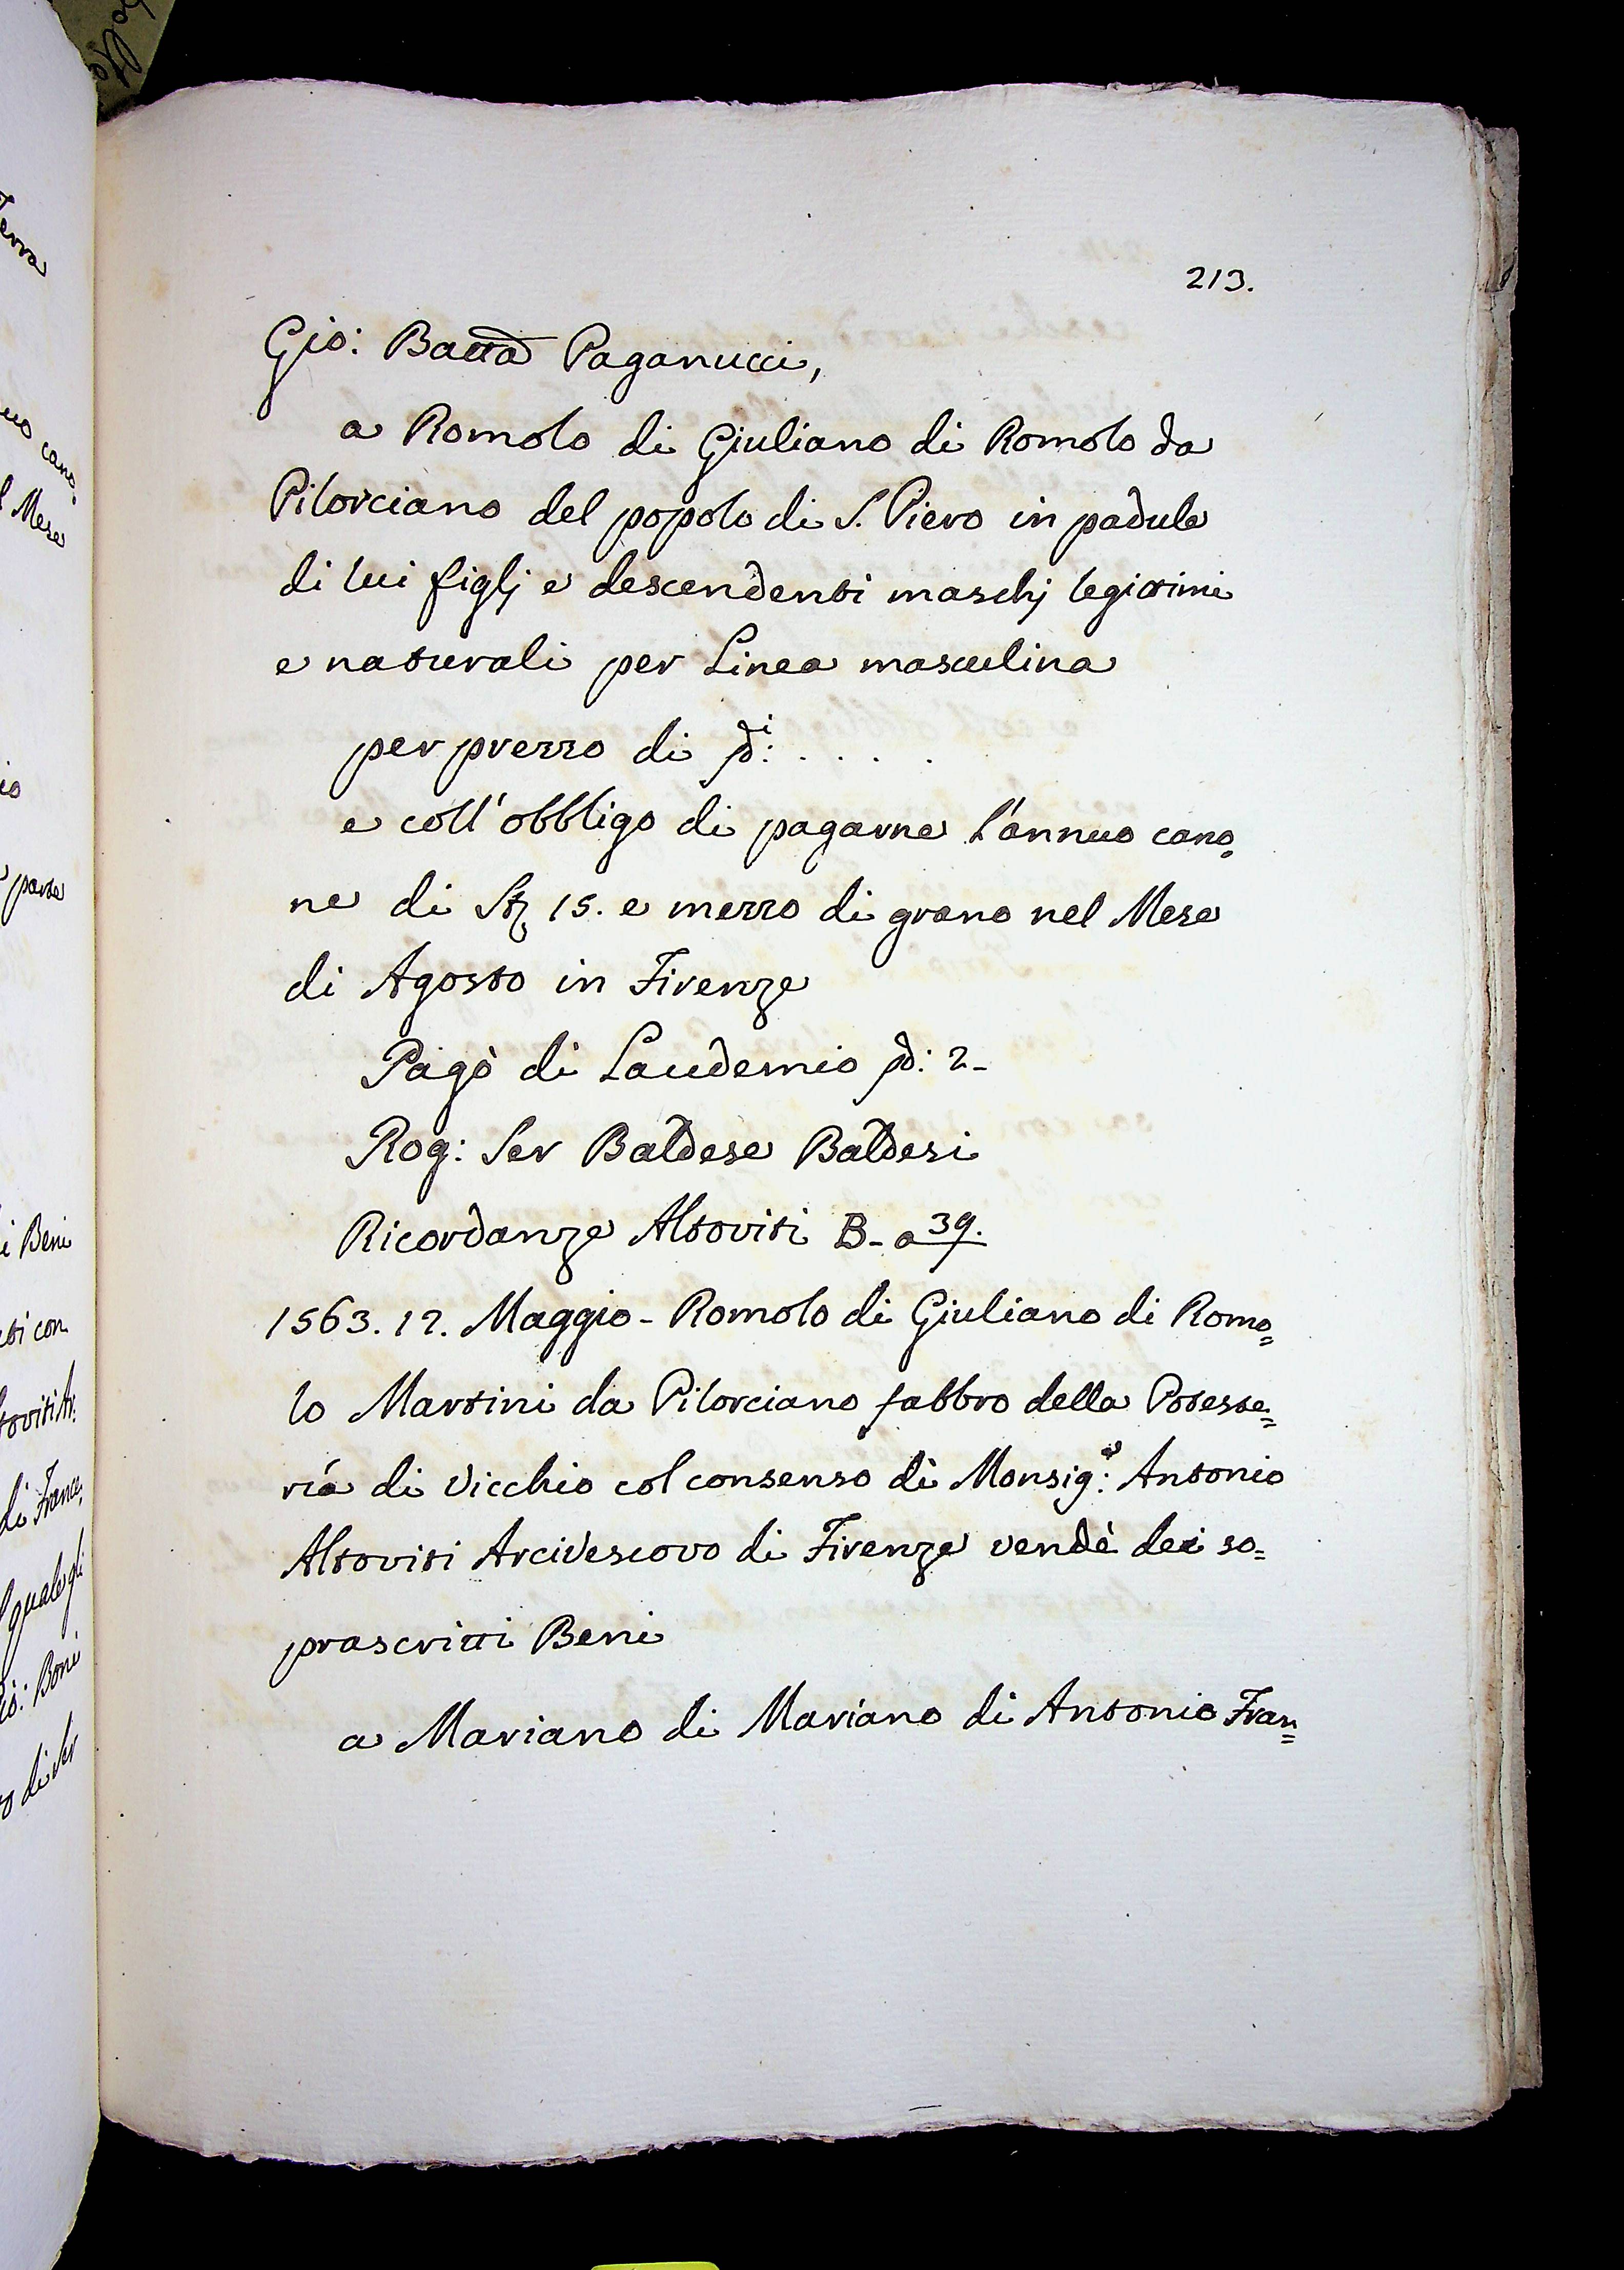 213.
Gio: Batta Paganucci,
a Romolo di Giuliano di Romolo da
Pilorciano del popolo di S. Piero in padule
di lui figlj e descendenti maschj legittimi
e naturali per Linea masculina
per prezzo di ₰i: . . . .
e coll'obbligo di pagarne l'annuo cano=
ne di St 15. e mezzo di grano nel Mese
di Agosto in Firenze
Pagò di Laudemio ₰: 2-
Rog: Ser Baldese Baldesi
Ricordanze Altoviti B- a 39.
1563. 12. Maggio - Romolo di Giuliano di Romo=
lo Martini da Pilorciano fabbro della Potesse=
ría di Vicchio col consenso di Monsig:e Antonio
Altoviti Arcivescovo di Firenze vendè dei so=
prascritti Beni
a Mariano di Mariano di Antonio Fran=